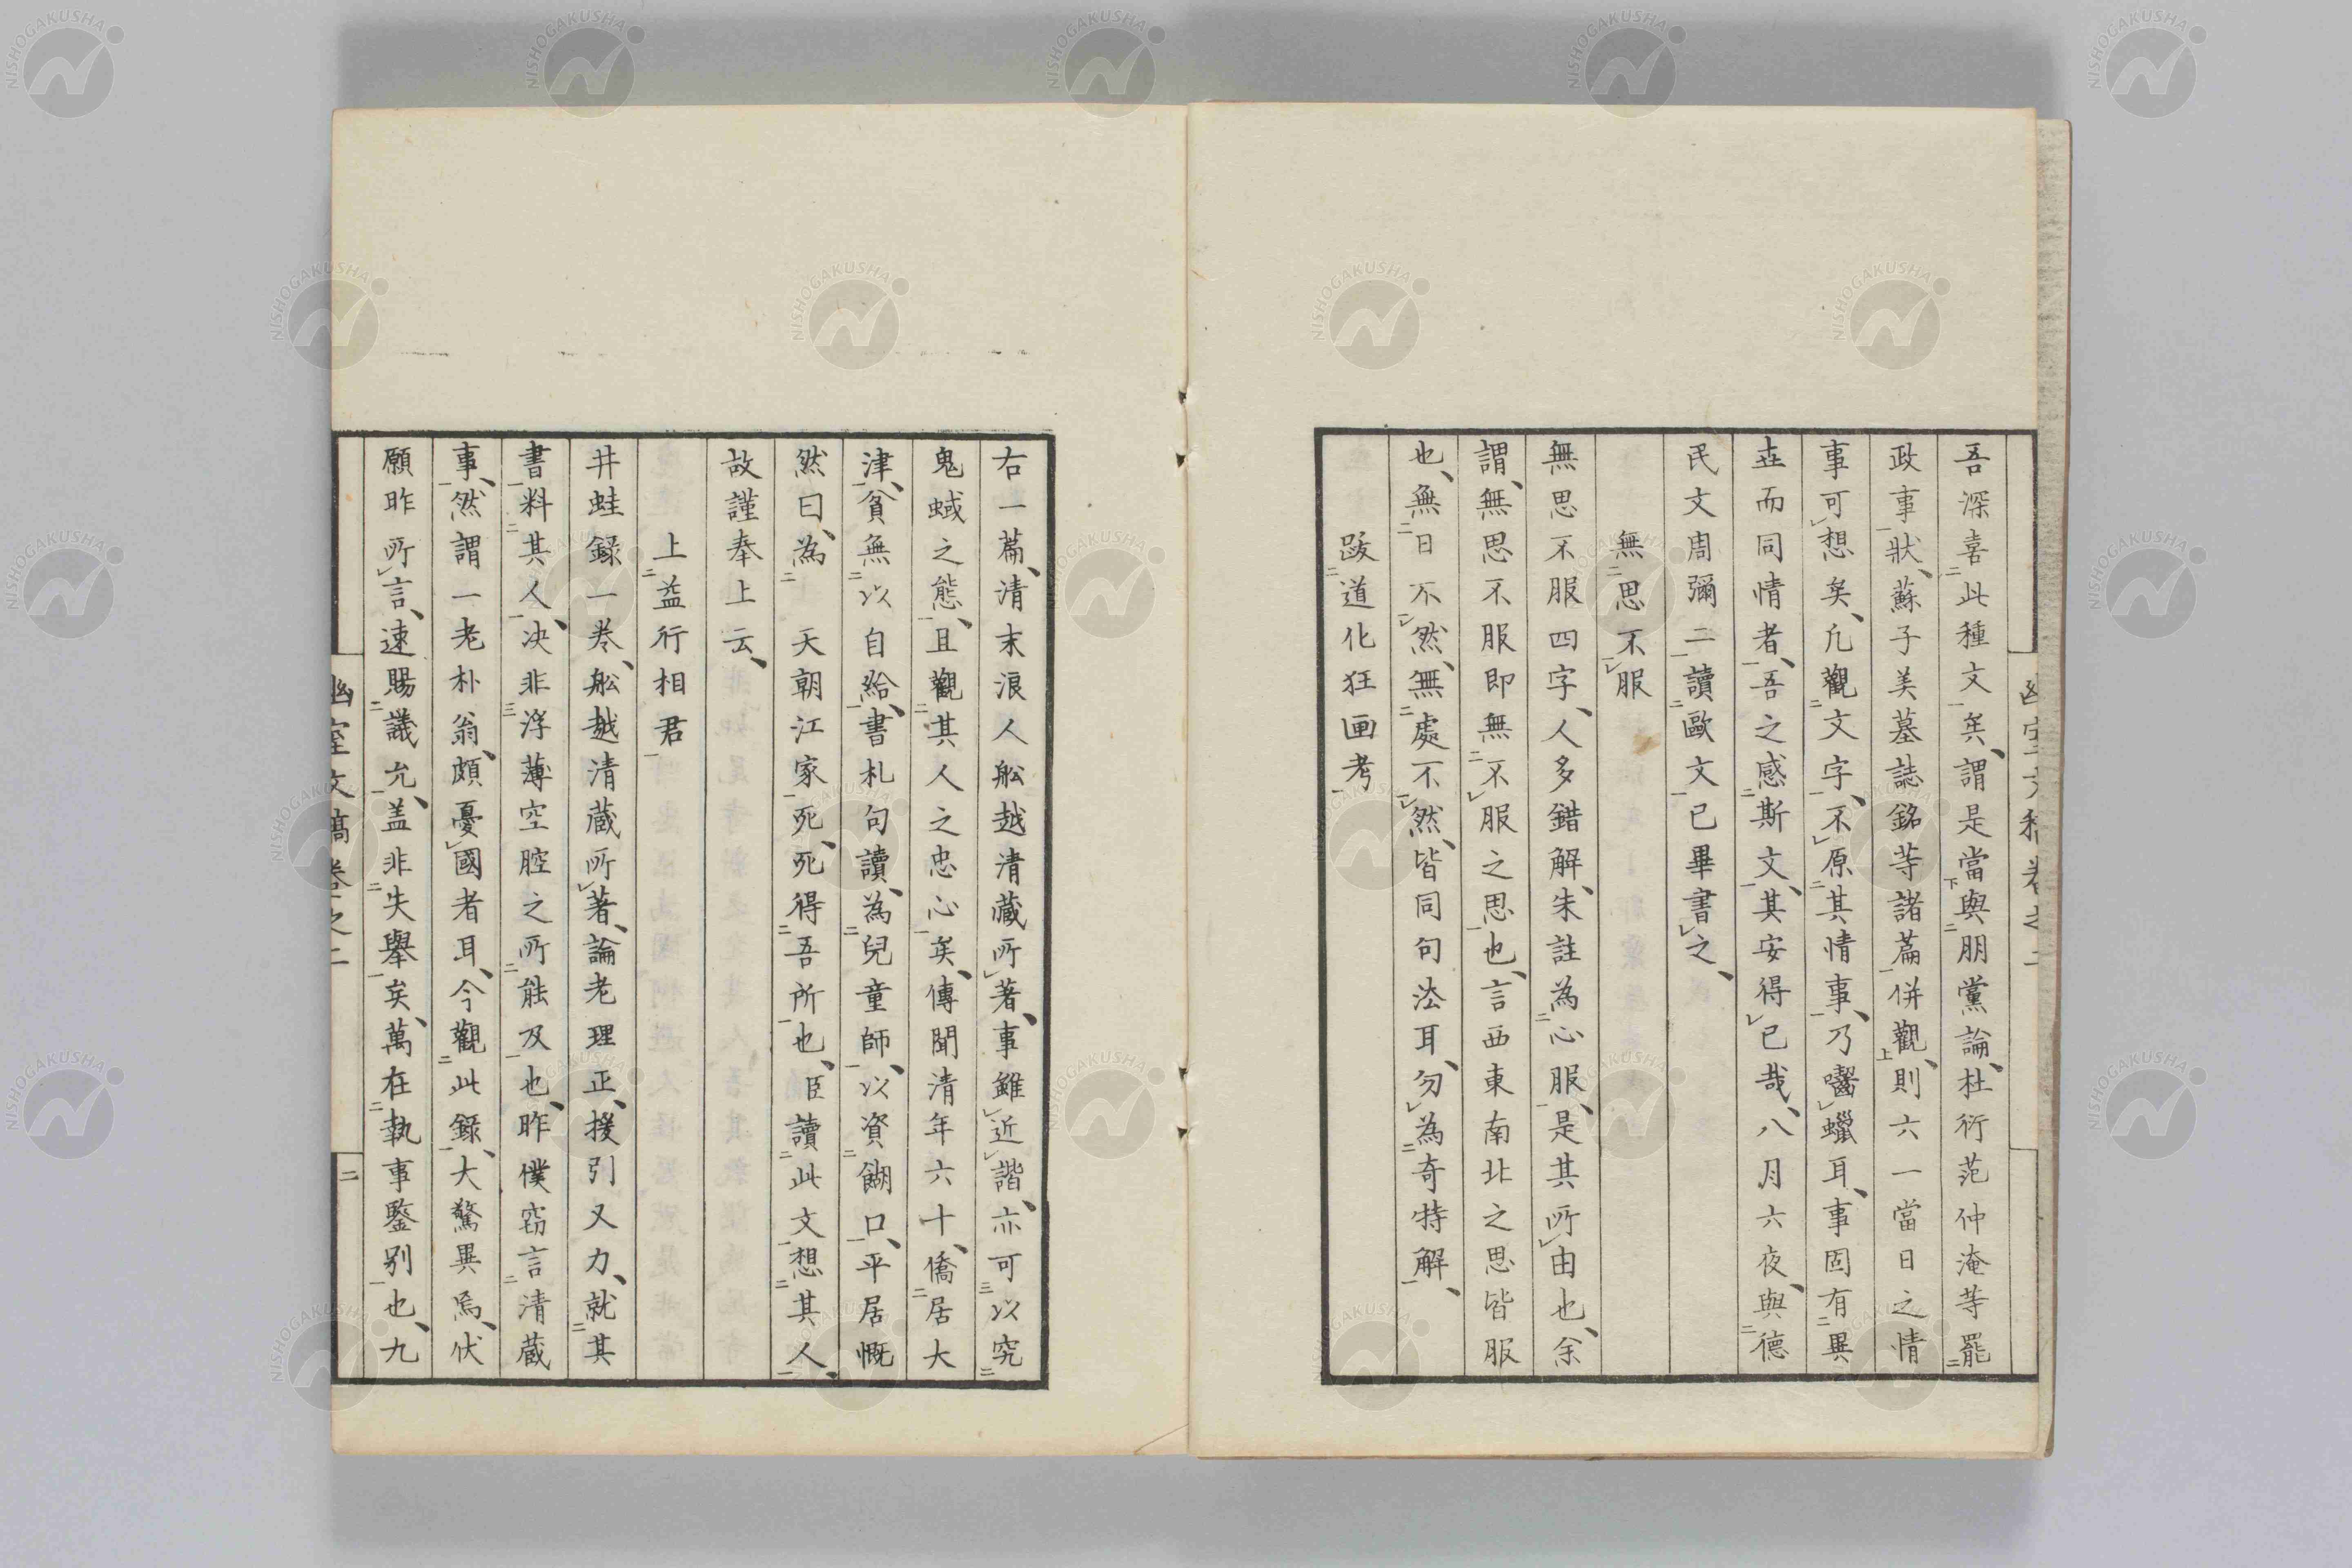 吾深喜此種文矣、謂是當與朋黨論、杜衍范仲淹等罷
政事狀、蘇子美墓誌銘等諸篇併觀、則六一當日之情
事可想矣、凡觀文字、不原其情事、乃嚼蠟耳、事固有異
世而同情者、吾之感斯文、其安得已哉、八月六夜、與德
民文周彌二讀歐文已畢書之、
無思不服
無思不服四字、人多錯解、朱註為心服、是其所由也、余
謂、無思不服即無不服之思也、言西東南北之思皆服
也、無日不然、無處不然、皆同句法耳、勿為奇特解、
跋道化狂画考
右一篇、清末浪人舩越清蔵所著、事雖近諧、亦可以究
鬼蜮之態、且觀其人之忠心矣、傳聞清年六十、僑居大
津、貧無以自給、書札句讀、為兒童師、以資餬口、平居慨
然曰、為天朝江家死、死得吾所也、臣讀此文想其人、
故謹奉上云、
上益行相君
井蛙録一巻、舩越清蔵所著、論老理正、援引又力、就其
書料其人、决非浮薄空腔之所能及也、昨僕窃言清蔵
事、然謂一老朴翁、頗憂國者耳、今觀此録、大驚異焉、伏
願昨所言、速賜議允、盖非失舉矣、萬在執事鑒别也、九
幽室文稿卷之二
二
NISHOGAKUSHA